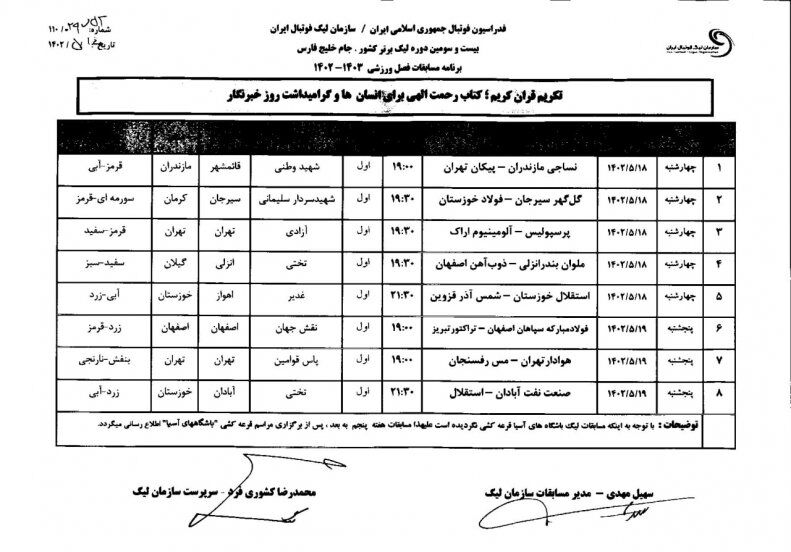 فدراسیون فوتبال جمهوری اسلامی ایران / سازمان لیگ فوتبال ایران
بیست و سومین دوره لیگ برتر کشور . جام خلیج فارس
برنامه مسابقات فصل ورزشی ۱۴۰۳-۱۴۰۲
سازمان لیگ فوتبال ایران
شماره:
تاریخ:
تکریم قران کریم ؛ کتاب رحمت الهی برای انسان ها و گرامیداشت روز خبرنگار
۱ چهارشنبه ۱۴۰۲/۵/۱۸ نساجی مازندران – پیکان تهران ۱۹:۰۰ اول شهید وطنی قائمشهر مازندران قرمز-آبی
۲ چهارشنبه ۱۴۰۲/۵/۱۸ گل‌گهر سیرجان – فولاد خوزستان ۱۹:۳۰ اول شهیدسردار سلیمانی سیرجان کرمان سورمه ای-قرمز
۳ چهارشنبه ۱۴۰۲/۵/۱۸ پرسپولیس – آلومینیوم اراک ۱۹:۳۰ اول آزادی تهران تهران قرمز-سفید
۴ چهارشنبه ۱۴۰۲/۵/۱۸ ملوان بندرانزلی – ذوب‌آهن اصفهان ۱۹:۳۰ اول تختی انزلی گیلان سفید-سبز
۵ چهارشنبه ۱۴۰۲/۵/۱۸ استقلال خوزستان – شمس آذر قزوین ۲۱:۳۰ اول غدیر اهواز خوزستان آبی-زرد
۶ پنجشنبه ۱۴۰۲/۵/۱۹ فولادمبارکه سپاهان اصفهان – تراکتورتبریز ۱۹:۰۰ اول نقش جهان اصفهان اصفهان زرد-قرمز
۷ پنجشنبه ۱۴۰۲/۵/۱۹ هوادارتهران – مس رفسنجان ۱۹:۰۰ اول پاس قوامین تهران تهران بنفش-نارنجی
۸ پنجشنبه ۱۴۰۲/۵/۱۹ صنعت نفت آبادان – استقلال ۲۱:۳۰ اول تختی آبادان خوزستان زرد-آبی
توضیحات : با توجه به اینکه مسابقات لیگ باشگاه های آسیا قرعه کشی نگردیده است علیهذا مسابقات هفته پنجم به بعد . پس از برگزاری مراسم قرعه کشی "باشگاههای آسیا" اطلاع رسانی میگردد.
سهیل مهدی – مدیر مسابقات سازمان لیگ
محمدرضا کشوری فرد – سرپرست سازمان لیگ